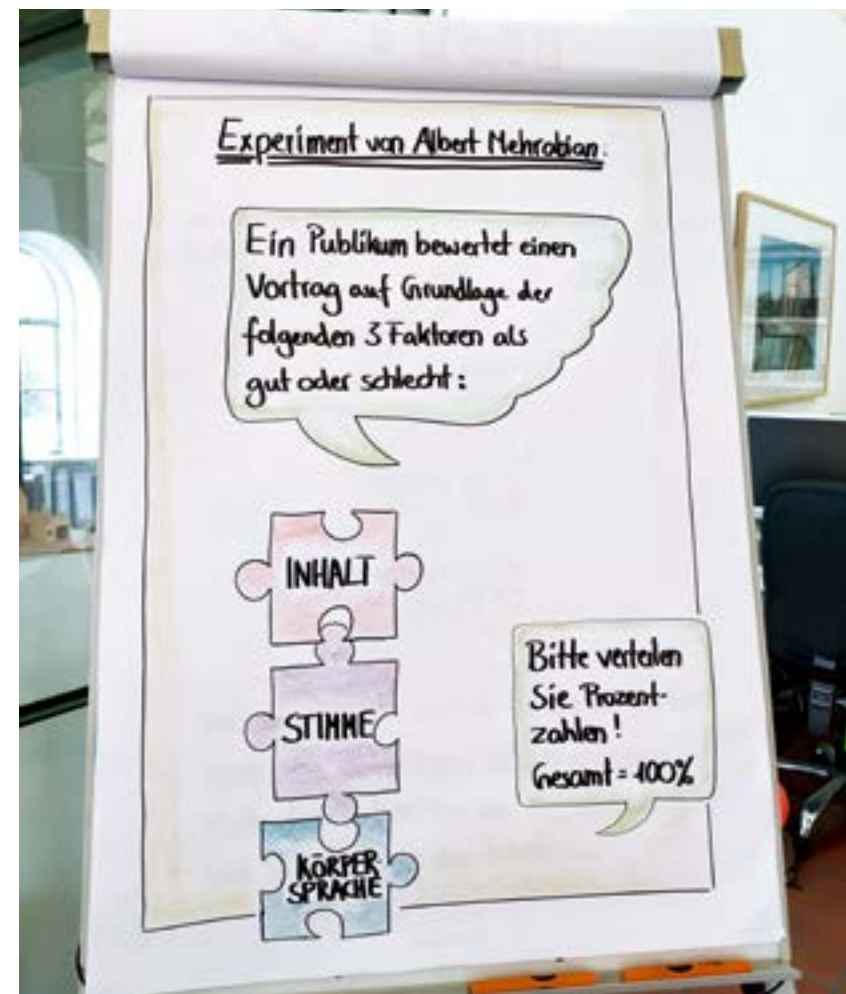 Experiment von Albert Mehrabian.
Ein Publikum bewertet einen
Vortrag auf Grundlage der
folgenden 3 Faktoren als
gut oder schlecht:
INHALT
STIMME
KÖRPER-
SPRACHE
Bitte verteilen
Sie Prozent-
zahlen!
Gesamt = 100%